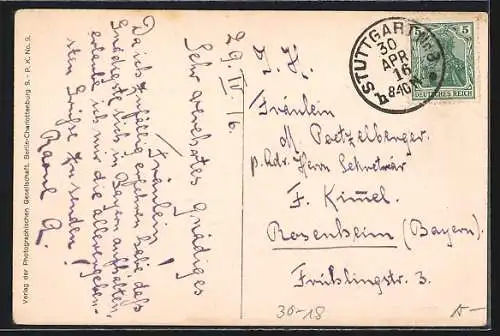 Verlag der Photographischen Gesellschaft, Berlin-Charlottenburg 9. - P. K. No. 9.
29.IV.16.
Sehr verehrtes gnädiges
Fräulein!
Da ich zufällig erfahren habe, daß
Gnädigste sich in Bayern aufhalten,
erlaube ich mir die allerergeben-
sten Grüße zu senden!
Raoul
STUTTGART Nr. 3
30
APR
16
8-9
5
DEUTSCHES REICH
Fräulein
M. Poetzelberger
p. Adr. Herrn Sekretär
F. Kimmel.
Rosenheim (Bayern)
Frühlingstr. 3.
30-18
A-